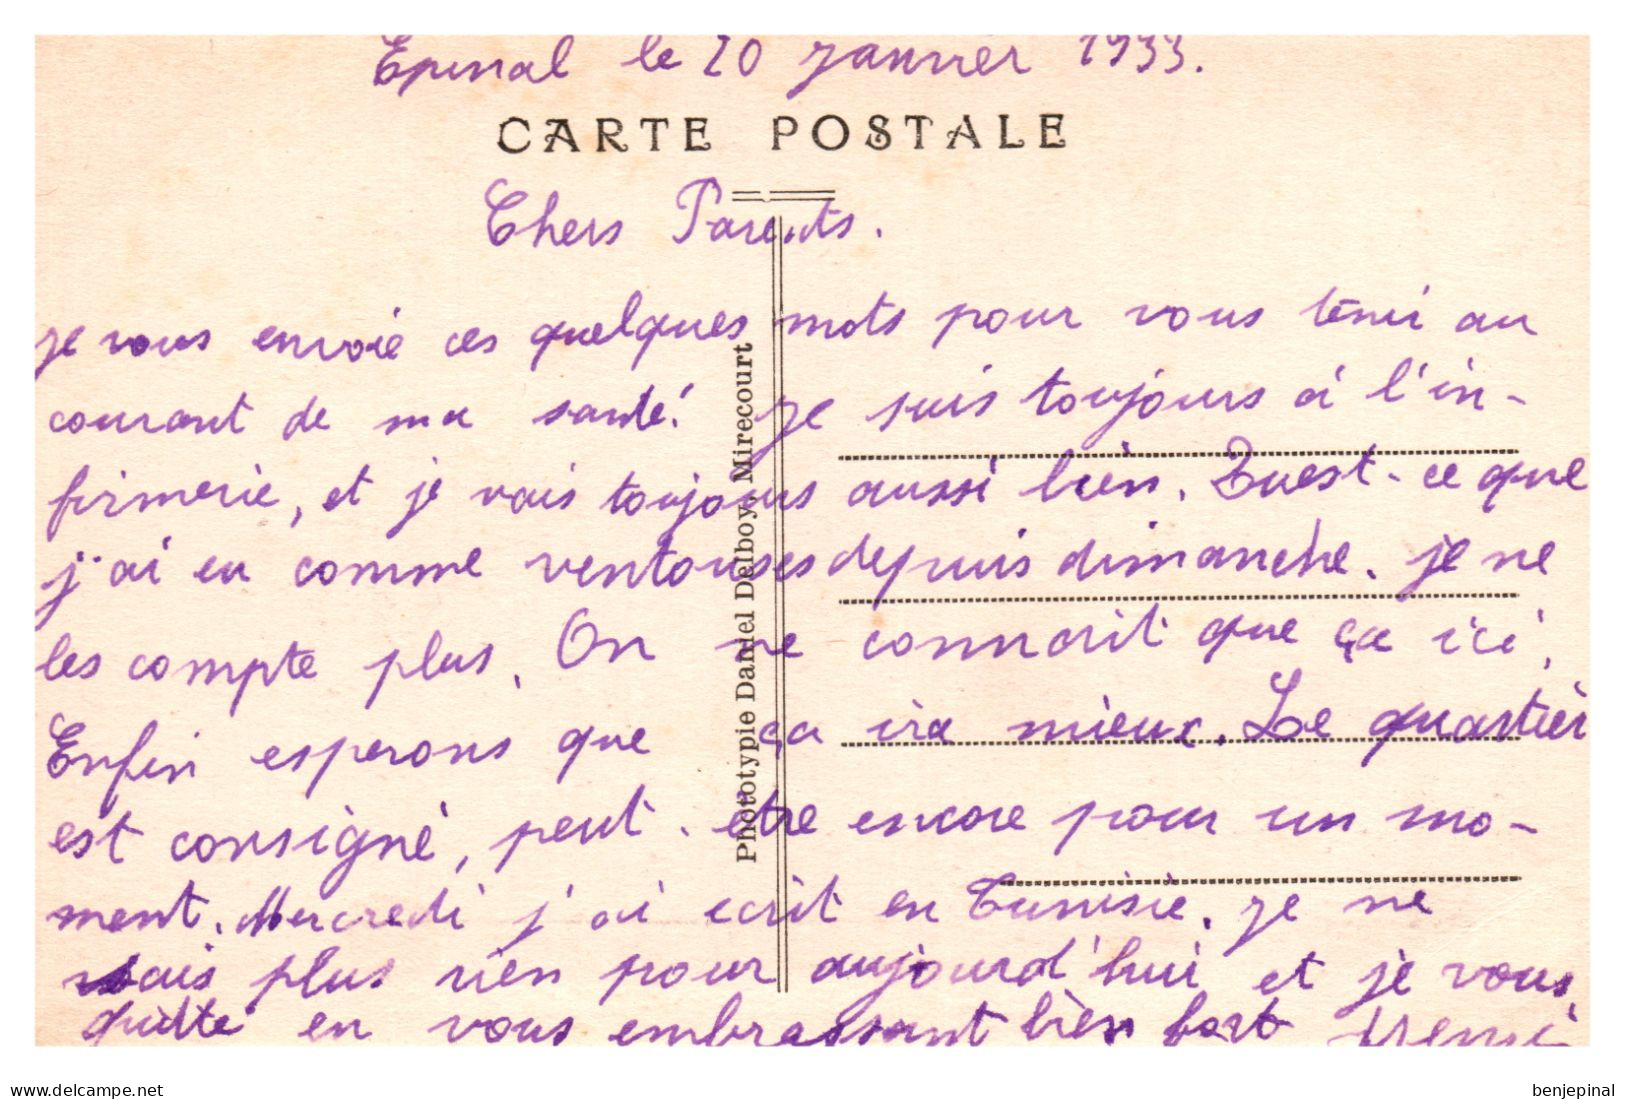 Epinal le 20 Janvier 1933.
CARTE POSTALE
Chers Parents.
je vous envoie ces quelques mots pour vous tenir au
courant de ma santé. Je suis toujours à l'in-
firmerie, et je vais toujours aussi bien. Quest-ce que
j'ai eu comme ventouses depuis dimanche. je ne
les compte plus. On ne connait que ça ici.
Enfin esperons que ça ira mieux. Le quartier
est consigné, peut-etre encore pour un mo-
ment. Mercredi j'ai ecrit en Tunisie. Je ne
sais plus rien pour aujourd'hui et je vous
quitte en vous embrassant bien fort
Phototypie Daniel Delboy, Mirecourt
www.delcampe.net
benjepinal